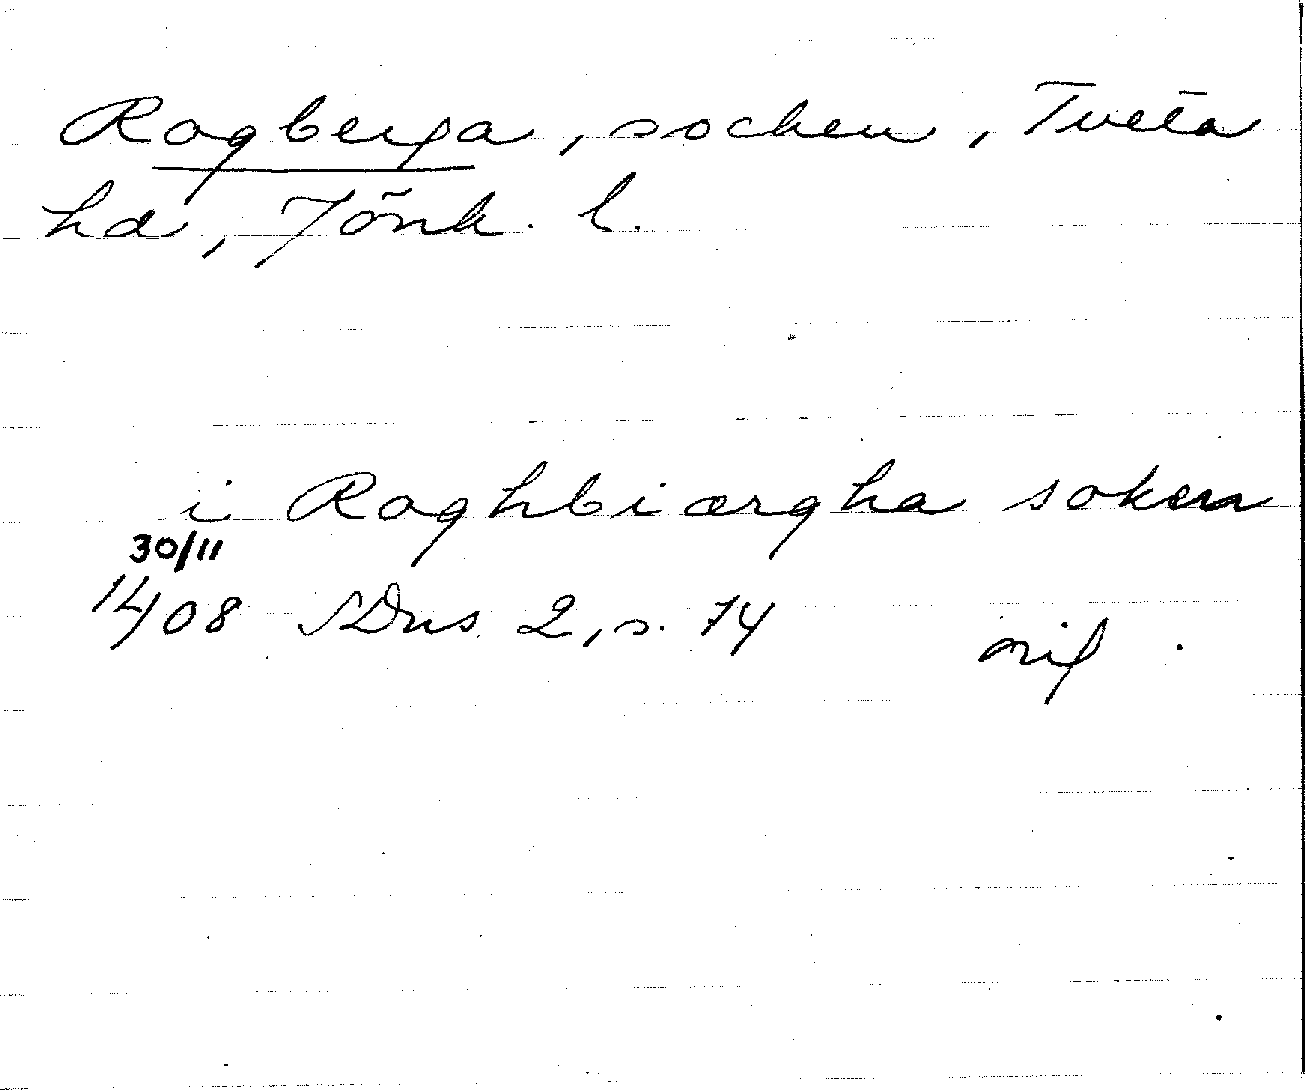 Rogberga, socken, Tveta
hd, Jönk. l.
i Roghbiærgha sokn
30/11
1408 SDns 2, s. 74 orif